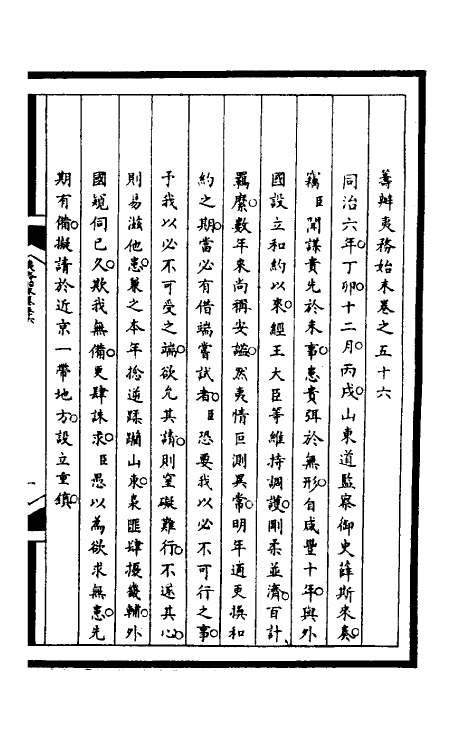 籌辦夷務始末卷之五十六
同治六年。丁卯。十二月。丙戌。山東道監察御史薛斯來奏。
竊臣聞謀貴先於未事。患貴弭於無形。自咸豐十年。與外
國設立和約以來。經王大臣等維持調護。剛柔並濟。百計、
羈縻。數年來尚稱安謐。然夷情叵測異常。明年適更換和
約之期。當必有借端嘗試者。臣恐要我以必不可行之事。
予我以必不可受之端。欲允其請。則窒礙難行。不遂其心。
則易滋他患。兼之本年捻逆蹂躪山東。梟匪肆擾畿輔。外
國窺伺已久。欺我無備。更肆誅求。臣愚以為欲求無患。先
期有備。擬請於近京一帶地方。設立重鎮。
一